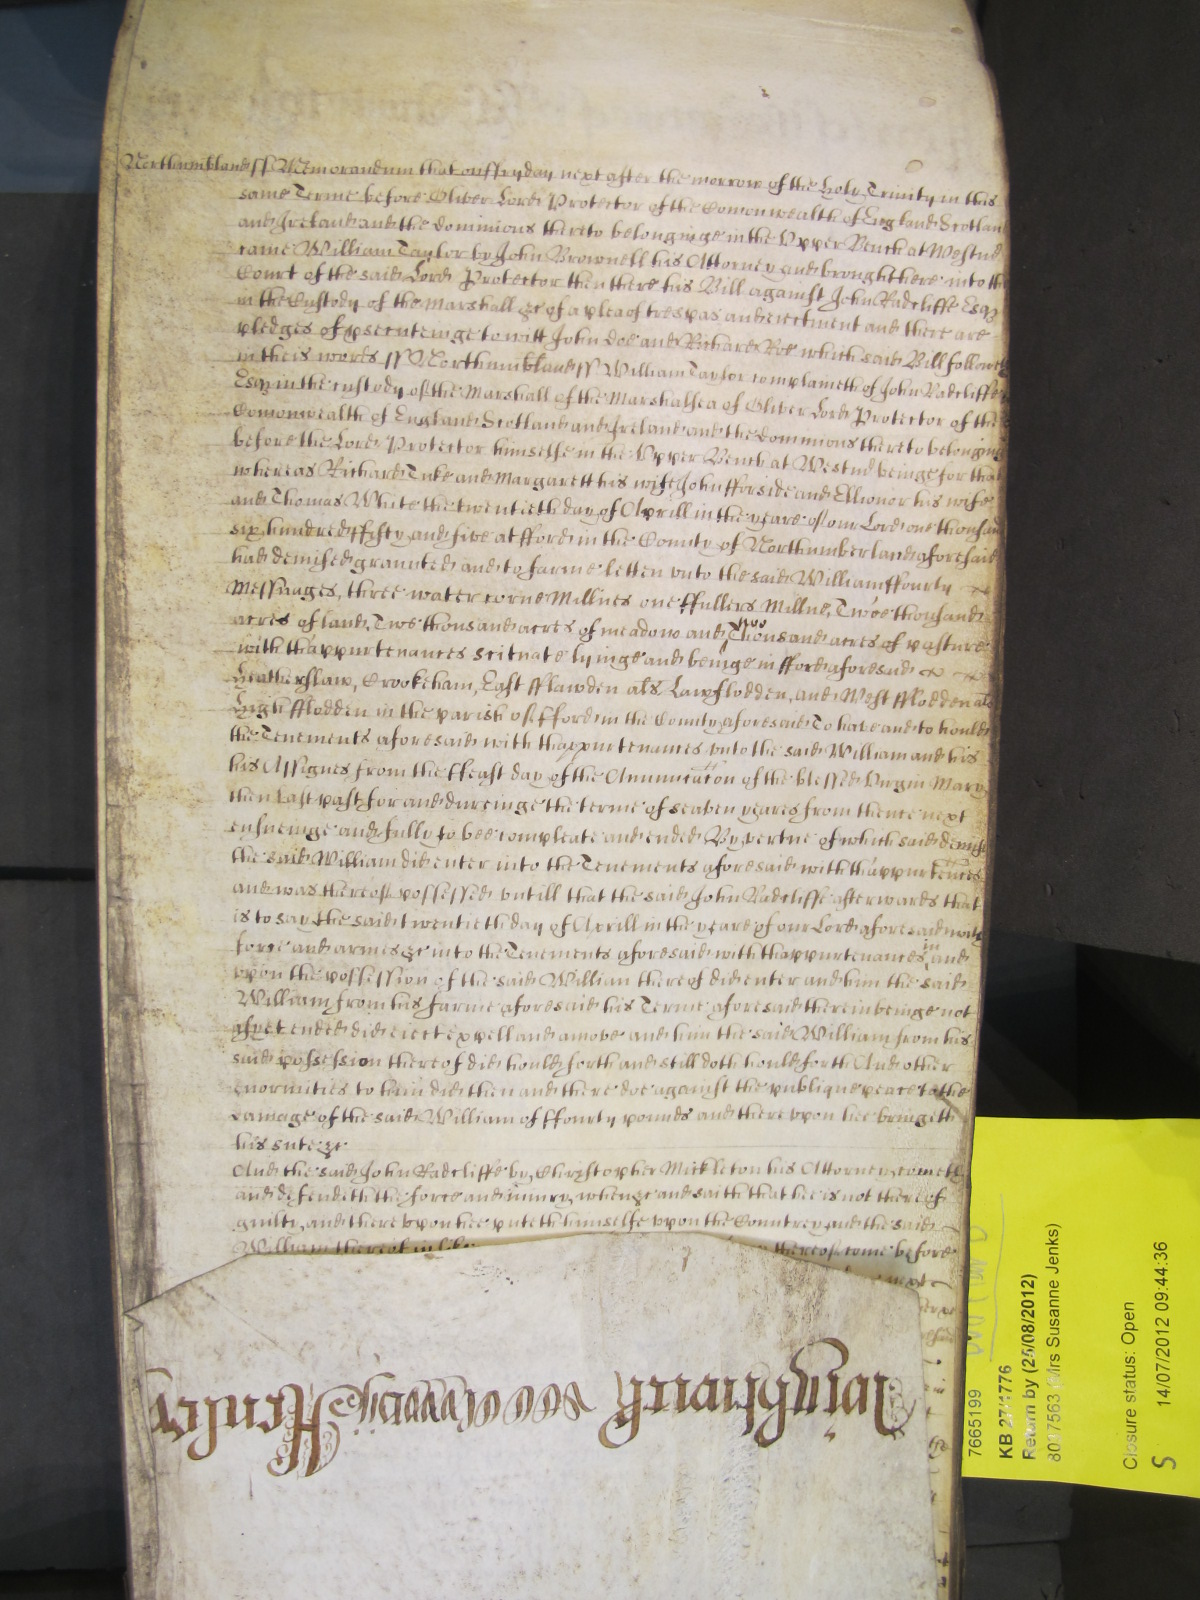 Northumbland ss Memorandum that on ffryday next after the morrow of the holy Trinity in this
same Terme before Oliver Lord Protector of the Comonwealth of England Scotlan
and Ireland and the dominions thereto belonginge in the Upper Bench at Westmr
came William Taylor by John Brownell his Attorney and brought here into th
Court of the said Lord Protector then there his Bill against John Radcliffe Esqr
in the Custody of the Marshall &c of a plea of trespas and eiectment and there are
pledges of psecuteinge to witt John Doe and Richard Roe which said Bill followeth
in theis words ss Northumbland ss William Taylor complaineth of John Radcliffe
Esqr in the custody of the Marshall of the Marshalsea of Oliver Lord Protector of the
Comonwealth of England Scotland and Ireland and the dominions thereto belonging
before the Lord Protector himselfe in the Upper Bench at Westmr beinge for that
whereas Richard Tuke and Margarett his wife John fforside and Ellionor his wife
and Thomas White the twentieth day of Aprill in the yeare of our Lord one thousan
six hundred ffifty and five at fford in the County of Northumberland aforesaid
had demised graunted and to farme letten vnto the said William ffourty
Messuages, three water corne Millnes one ffullers Millne, Twoe thousand
acres of land, Two thousand acres of meadow and two Thousand acres of pasture
with thappurtenances scituate lyinge and beinge in fford aforesaid
Heatherslaw, Crookeham, East fflawden als Lawflodden, and West fflodden als
High fflodden in the parish of fford in the County aforesaid To have and to hould
the Tenements aforesaid with thappurtenances vnto the said William and his
his Assignes from the ffeast day of the Annunciacon of the blessed Virgin Mary
then last past for and dureinge the terme of seaven yeares from thence next
ensueinge and fully to bee compleate and ended By vertue of which said demise
the said William did enter into the Tenements aforesaid with thappurtences
and was thereof possessed vntill that the said John Radcliffe afterwards that
is to say the said twentieth day of Aprill in the yeare of our Lord aforesaid with
force and armes &c into the Tenements aforesaid with thappurtenances in and
vpon the possession of the said William thereof did enter and him the said
William from his farme aforesaid his Terme aforesaid therein beinge not
as yet ended did eiect expell and amove and him the said William from his
said possession thereof did hould forth and still doth hould forth And other
enormities to him did then and there doe against the publique peace to the
damage of the said William of ffourty pounds and there vpon hee bringeth
his sute &c
And the said John Radcliffe by Christopher Mickleton his Attorney cometh
and defendeth the force and iniury when &c and saith that hee is not thereof
guilty and there vpon hee puteth himselfe vpon the Countrey and the said
William thereof in like thereof come before
7665199
KB 27/1776
Return by (25/08/2012)
8017563 (Mrs Susanne Jenks)
Closure status: Open
S 14/07/2012 09:44:36